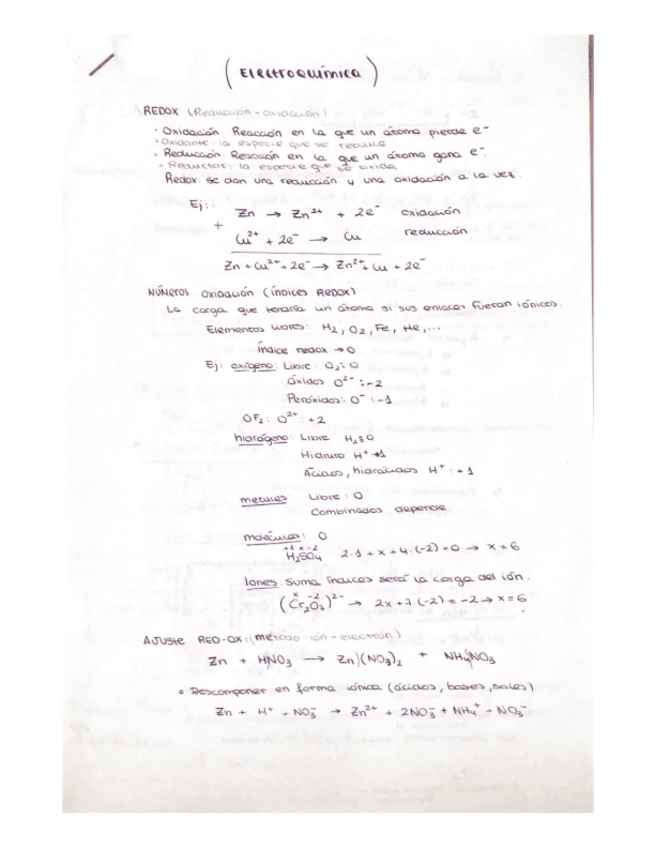 (Electroquímica)
REDOX (Reducción - oxidación)
· Oxidación: Reacción en la que un átomo pierde e⁻
· Oxidante: la especie que se reduce
· Reducción: Reacción en la que un átomo gana e⁻.
· Reductor: la especie que se oxida
Redox: se dan una reducción y una oxidación a la vez.
Ej:
Zn → Zn²⁺ + 2e⁻ oxidación
+
Cu²⁺ + 2e⁻ → Cu reducción
Zn + Cu²⁺ + 2e⁻ → Zn²⁺ + Cu + 2e⁻
NÚMEROS OXIDACIÓN (ÍNDICES REDOX)
La carga que tendría un átomo si sus enlaces fueran iónicos.
Elementos libres: H₂, O₂, Fe, He,...
índice redox → 0
Ej: oxígeno: Libre: O₂: 0
Óxidos O²⁻: -2
Peróxidos: O⁻: -1
OF₂: O²⁺: +2
hidrógeno: Libre H₂: 0
Hidruro H⁺ +1
Ácidos, hidrácidos H⁺: +1
metales Libre: 0
Combinados depende
moléculas: 0
+1 x -2
H₂SO₄ 2·1 + x + 4·(-2) = 0 → x = 6
Iones: suma índices será la carga del ión.
x -2
(Cr₂O₇)²⁻ → 2x + 7(-2) = -2 → x = 6
AJUSTE RED-OX: (método ión-electrón)
Zn + H/NO₃ → Zn/(NO₃)₂ + NH₄/NO₃
• Descomponer en forma iónica (ácidos, bases, sales)
Zn + H⁺ + NO₃⁻ → Zn²⁺ + 2NO₃⁻ + NH₄⁺ + NO₃⁻